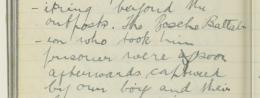 - itring beyond the
outposts. The Bosche Battal-
- ion who took him
prisoner were soon
afterwards captured
by our boys and their